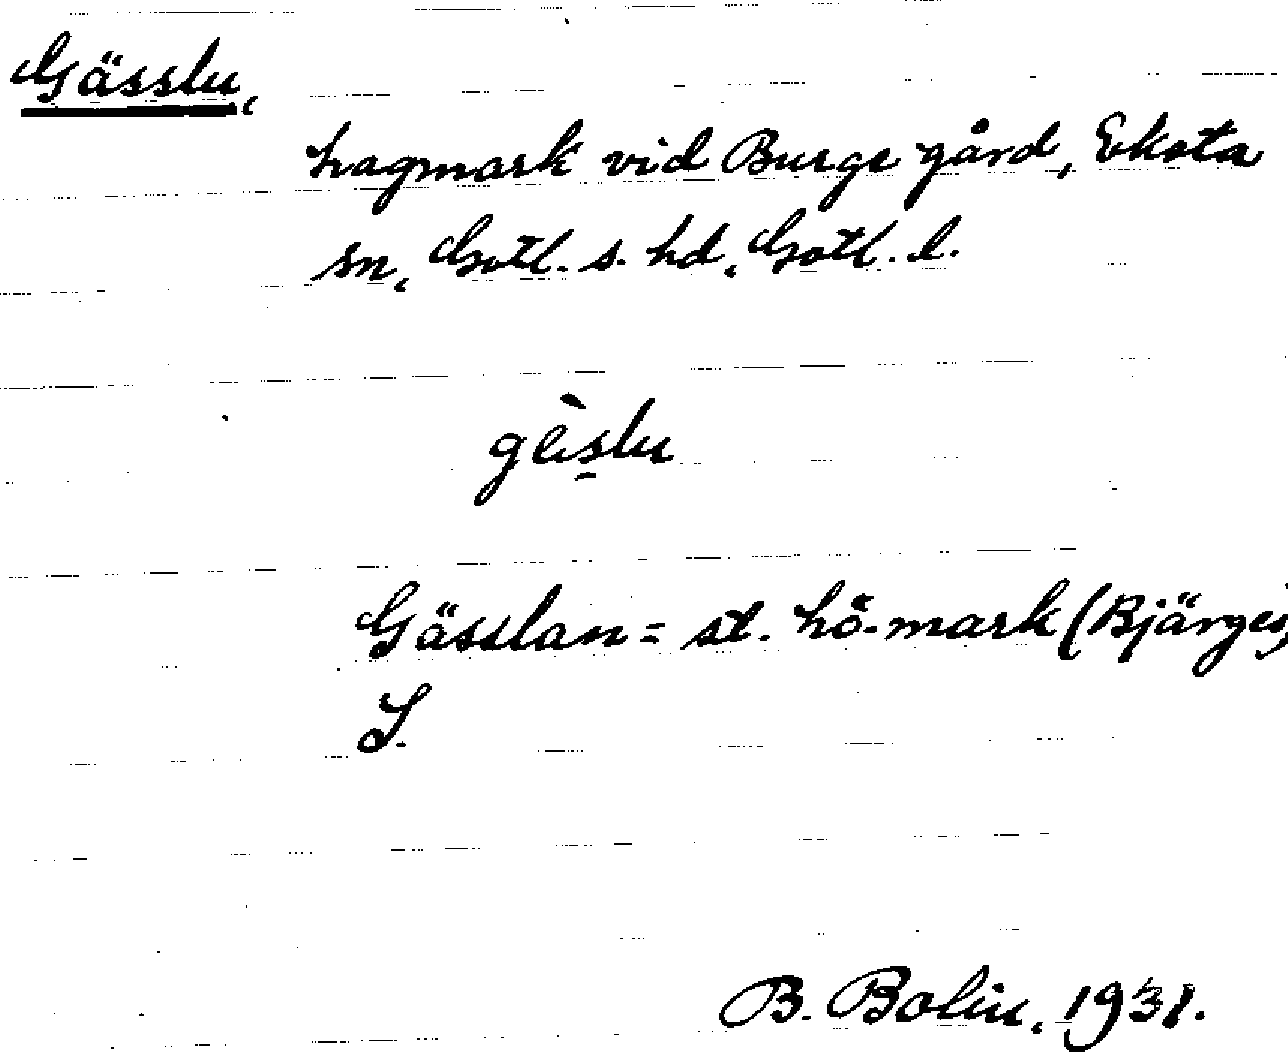 Gässlu,
hagmark vid Burge gård, Eksta
sn, Gotl. s. hd, Gotl. l.
gèslu
Gässlan = st. hö-mark (Bjärges)
S.
B. Bolin, 1931.